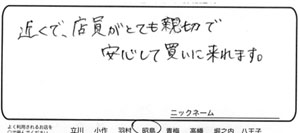 近くで、店員がとても親切で
安心して買いに来れます。
ニックネーム
よく利用されるお店を
立川 小作 羽村 昭島 青梅 高幡 堀之内 八王子